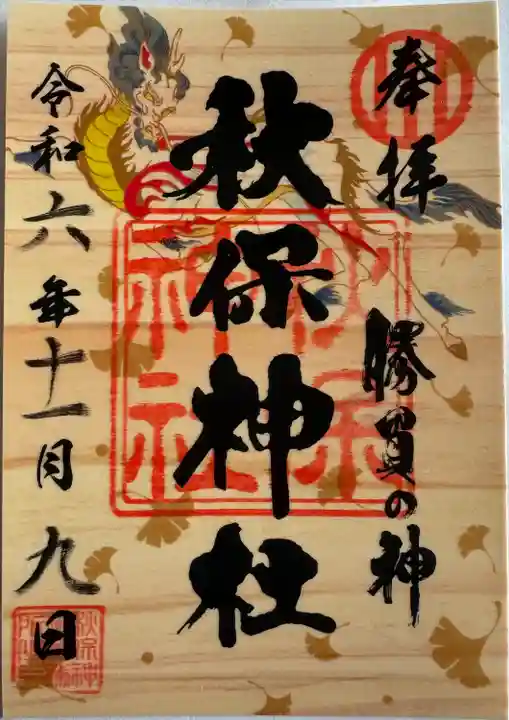 奉拝
勝負の神
秋保神社
令和六年十一月九日
秋保神社